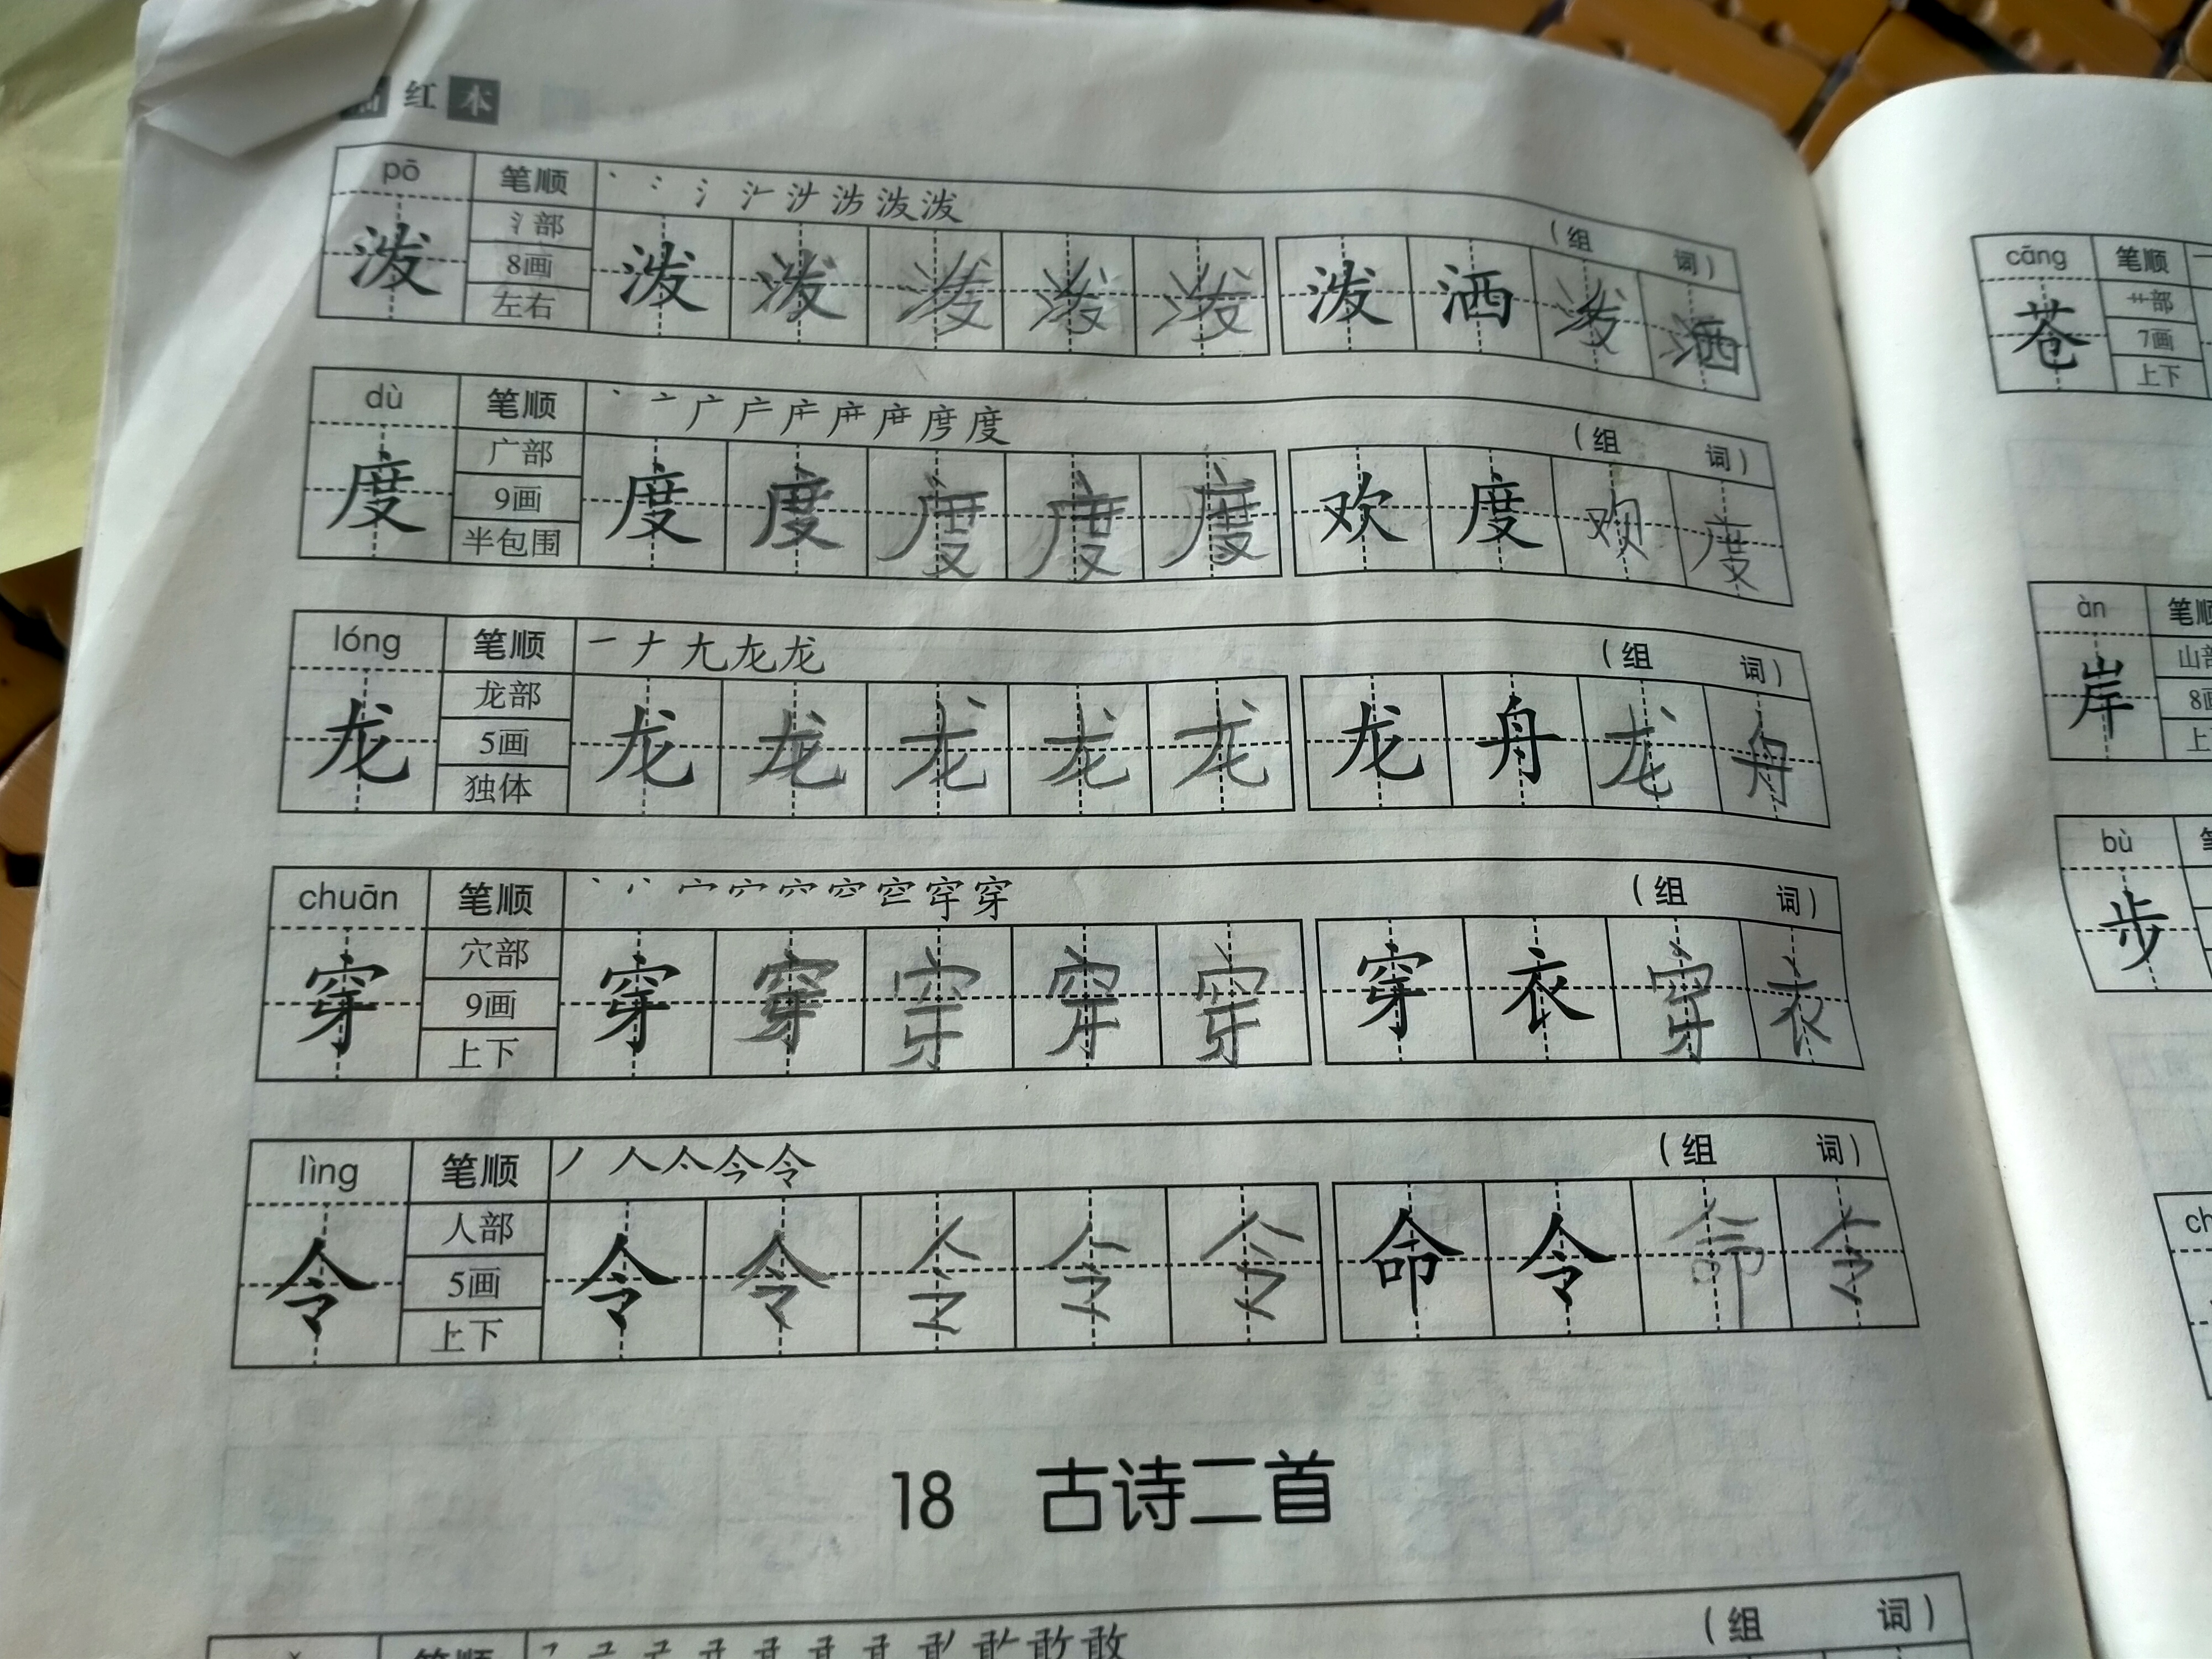 红本
pō 笔顺 丶 氵 泼 泼 (组 词)
泼 氵部 8画 左右 泼 泼 泼 泼 泼 泼 洒 泼 洒
dù 笔顺 丶 亠 广 度 (组 词)
度 广部 9画 半包围 度 度 度 度 度 欢 度 欢 度
lóng 笔顺 一 ナ 尢 龙 龙 (组 词)
龙 龙部 5画 独体 龙 龙 龙 龙 龙 龙 舟 龙 舟
chuān 笔顺 丶 宀 穴 穿 (组 词)
穿 穴部 9画 上下 穿 穿 穿 穿 穿 穿 衣 穿 衣
lìng 笔顺 丿 人 亼 今 令 (组 词)
令 人部 5画 上下 令 令 令 令 令 命 令 命 令
18 古诗二首
笔顺 敢 敢 (组 词)
cāng 笔顺
苍 艹部 7画 上下
àn
岸 8画
bù
步